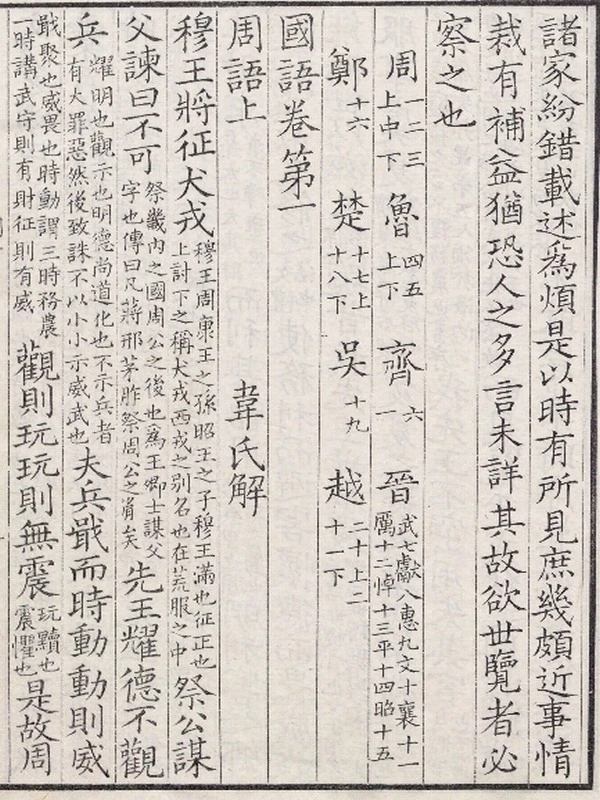 諸家紛錯載述爲煩是以時有所見庶幾頗近事情
裁有補益猶恐人之多言未詳其故欲世覽者必
察之也
周一二三上中下 魯四五上下 齊六一 晉武七獻八惠九文十襄十一厲十二悼十三平十四昭十五
鄭十六 楚十七上十八下 吳十九 越二十上二十一下
國語卷第一
周語上 韋氏解
穆王將征犬戎穆王周康王之孫昭王之子穆王滿也征正也上討下之稱犬戎西戎之别名也在荒服之中祭公謀
父諫曰不可祭畿内之國周公之後也爲王卿士謀父字也傳曰凡蔣邢茅胙祭周公之胤矣先王耀德不觀
兵耀明也觀示也明德尚道化也不示兵者有大罪惡然後致誅不以小小示威武也夫兵戢而時動動則威
戢聚也威畏也時動謂三時務農一時講武守則有財征則有威觀則玩玩則無震玩黷也震懼也是故周